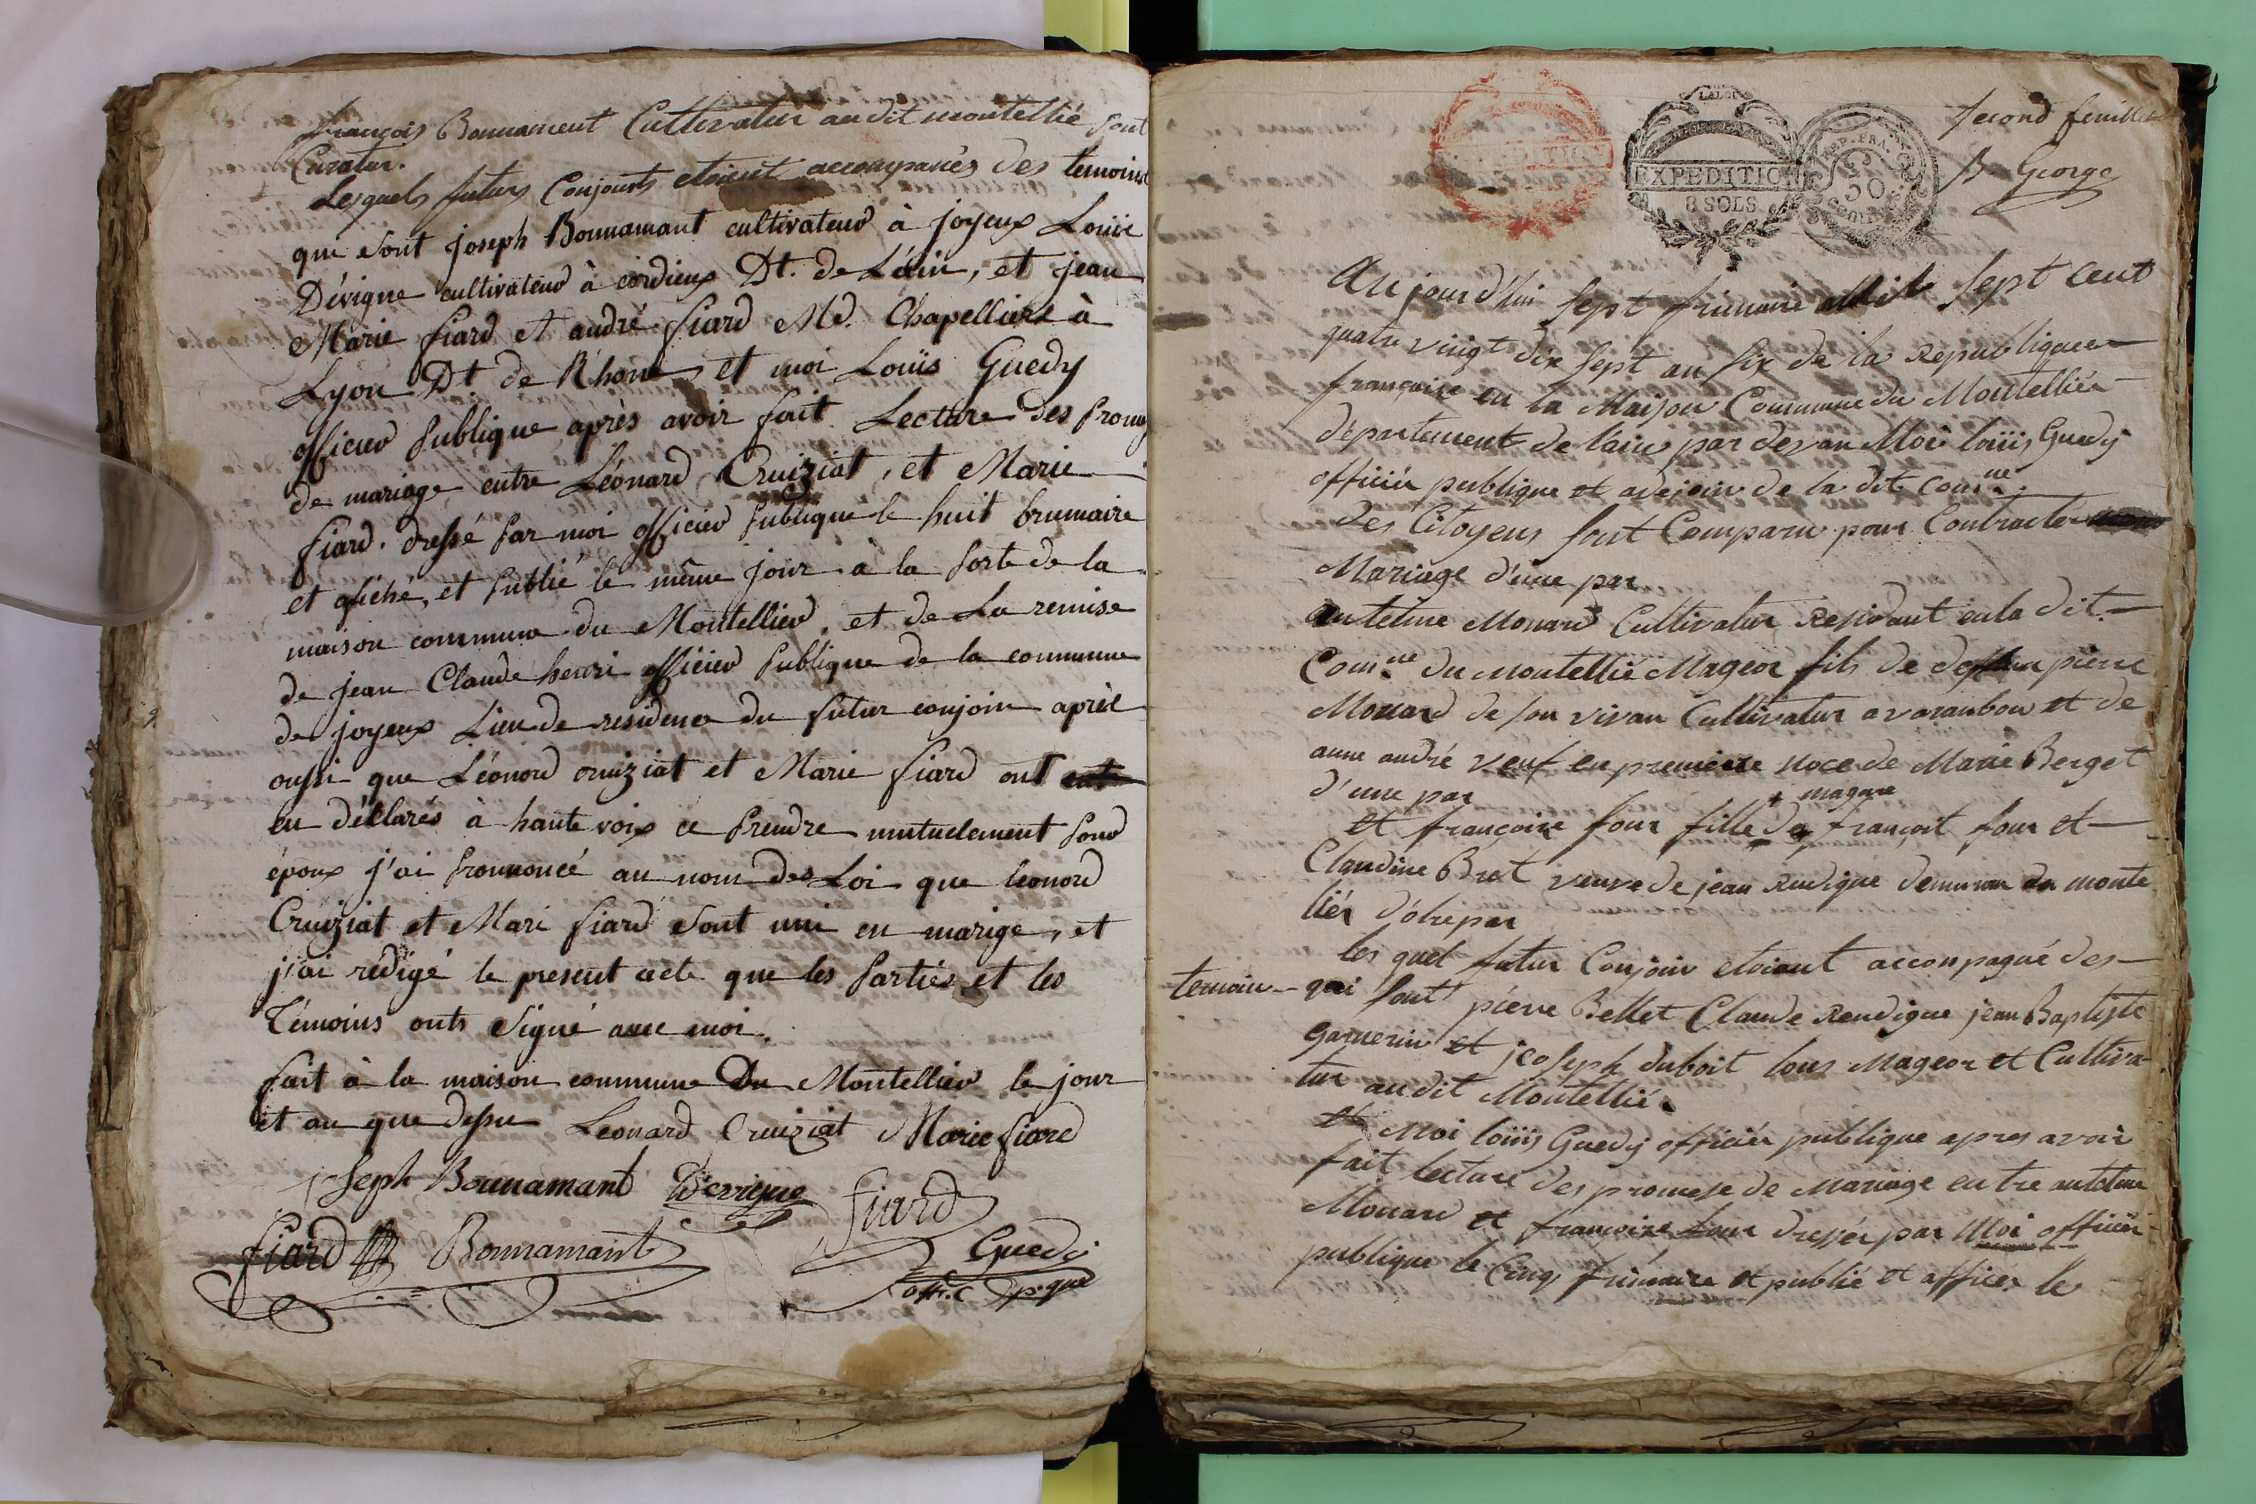 françois Bonnament Cultivateur audit montellié sont
Curateur.
Lesquels futurs Conjoints etoient accompanés des temoins
que sont joseph Bonnamant cultivateur à joyeux Louis
Dévigne cultivateur à cordieux Dt. de Láin, et jean
Marie fiard et andré fiard Md. Chapelliers à
Lyon Dt de Rhone et moi Louïs Guedy
officier publique après avoir fait Lecture des prom
de mariage entre Léonard Cruiziat, et Marie
fiard. dressé par moi officier publique le huit brumaire
et afiché, et publié le même jour à la porte de la
maison commune du Montellier, et de La remise
de jean Claude henri officier publique de la commune
de joyeux Lieu de residence du futur conjoin après
oussi que Léonord cruiziat et Marie fiard ont
eu déclarés à haute voix ce prendre mutuelement pour
époux j'ai pronnoncé au nom des Loi que leonord
Cruiziat et Mari fiard sont uni en marige, et
j'ai rédigé le present acte que les parties et les
Témoins onts signé avec moi.
fait à la maison commune Du Montellier le jour
et an que dessu Leonard Cruiziat Marie fiard
joseph Bounamant Devigne fiard
fiard Bonnamant Guedy
offi.c p.que
LA LOI
EXPEDITION
8 SOLS
REP. FRA.
50
centimes
second feuillet
B George
Aujourd'hui sept frimaire Mil sept cent
quatre vingt dix sept an six de la Republique
françaice en la Maison Commune du Montelliér
département de lain par devan Moi loüis Guedy
officiér publique et adejoin de la dit Comne.
des Citoyens sont Comparu pour Contracter
Mariage d'une par
antelme Monard Cultivatur Residant en la dit
Comne du Montellié Mageor fils de deffun pierre
Monard de son vivan Cultivatur a varanbon et de
anne andré veuf en premiere noce de Marie Berget
d'une par
+ magure
et françoise four fille de françoit four et
Claudine Bret veuve de jean Rudigue demuran du monte
liér d'otre par
les quel futur Conjoin etoiant acconpagné des
temoin qui sont pierre Bellet Claude Rendigue jean Baptiste
garnerin et joseph duboit tous Mageor et Cultiva-
tur audit Montellié.
et Moi loüis Guedy officiér publique apres avoir
fait lecture des promese de Mariage entre antelme
Monard et françoise four dressér par Moi officiér
publique le Cinq frimaire et publié et afficer le